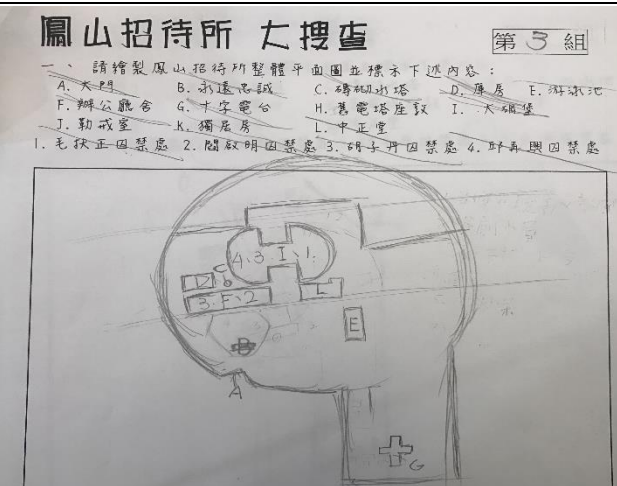 鳳山招待所 大搜查
第 3 組
一、請繪製鳳山招待所整體平面圖並標示下述內容：
A. 大門 B. 永遠忠誠 C. 磚砌水塔 D. 庫房 E. 游泳池
F. 辦公廳舍 G. 十字電台 H. 舊電塔座設 I. 大碉堡
J. 勒戒室 K. 獨居房 L. 中正堂
1. 毛扶正囚禁處 2. 閻啟明囚禁處 3. 胡子丹囚禁處 4. 邱再興囚禁處
4、3. I、1.
C
D
3. F、2
L
E
B
A
G